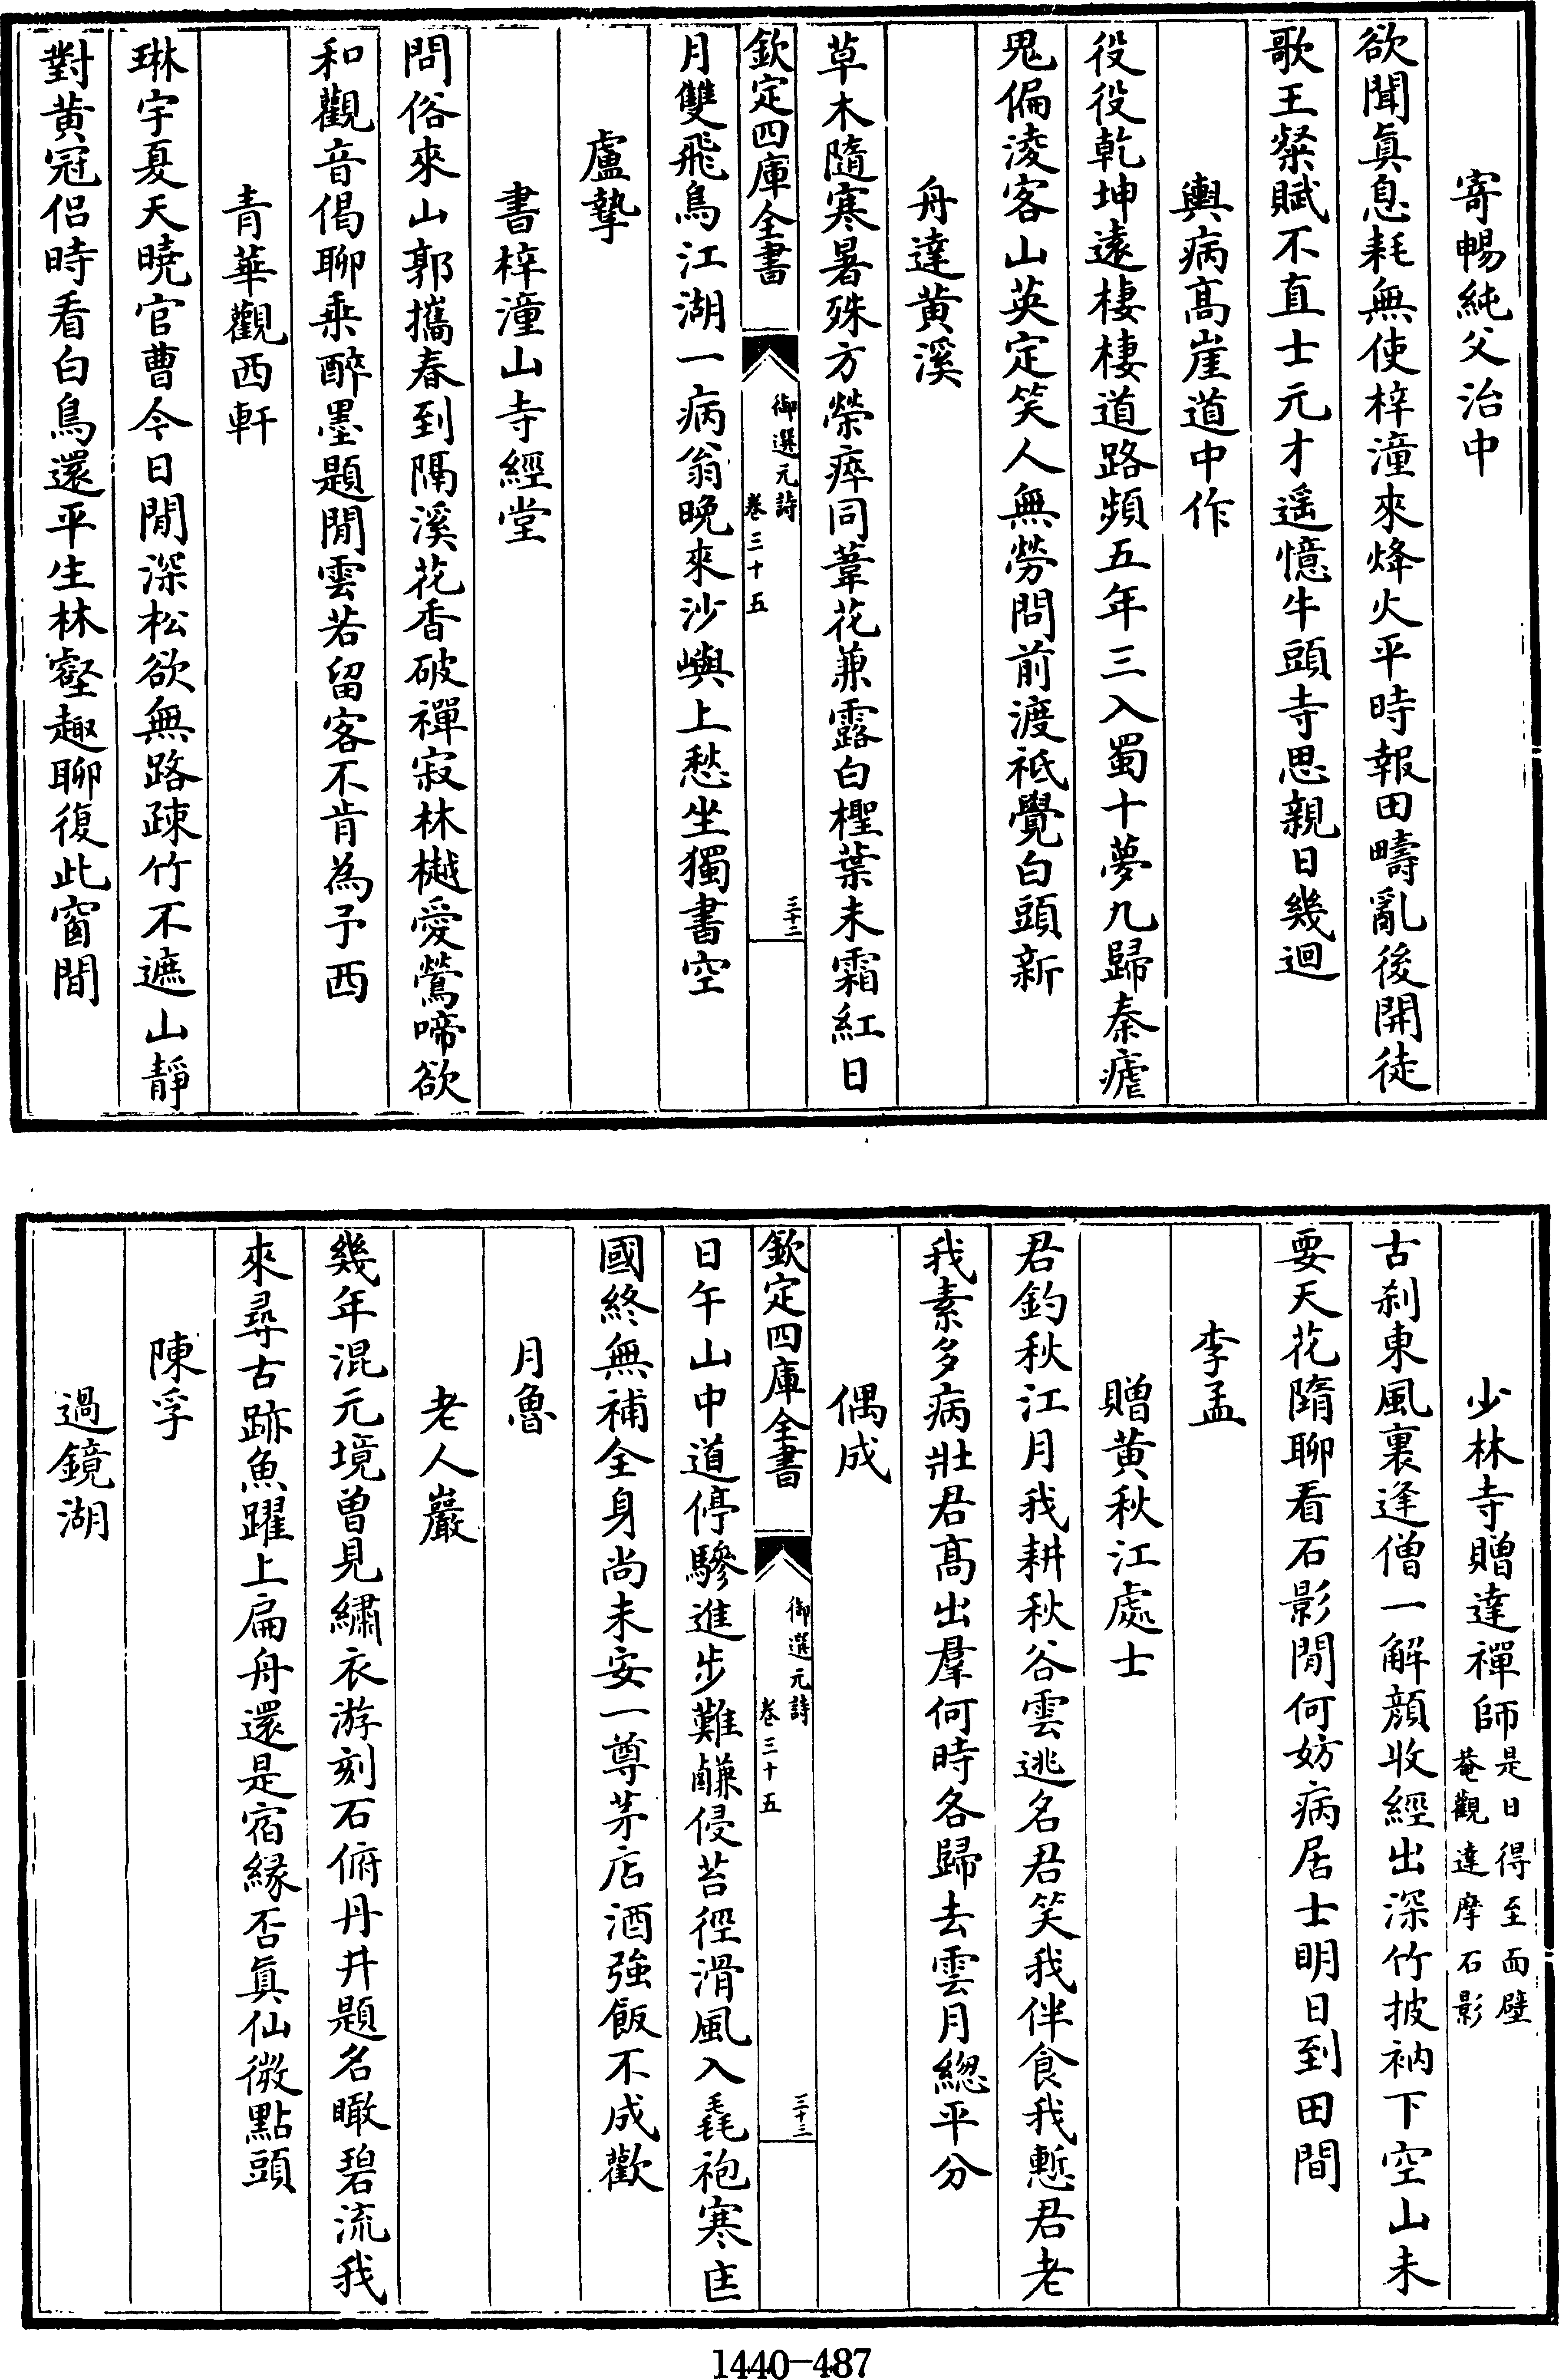 寄暢純父治中
欲聞真息耗無使梓潼來烽火平時報田疇亂後開徒
歌王粲賦不直士元才遥憶牛頭寺思親日幾迴
輿病髙崖道中作
役役乾坤遠棲棲道路頻五年三入蜀十夢九歸秦瘧
鬼偏淩客山英定笑人無勞問前渡衹覺白頭新
舟達黄溪
草木隨寒暑殊方榮瘁同葦花兼露白檉葉未霜紅日
欽定四庫全書
御選元詩
卷三十五
三十二
月雙飛鳥江湖一病翁晚來沙嶼上愁坐獨書空
盧摯
書梓潼山寺經堂
問俗來山郭攜春到隔溪花香破禪寂林樾愛鶯啼欲
和觀音偈聊乘醉墨題閒雲若留客不肯為予西
青華觀西軒
琳宇夏天曉官曹今日閒深松欲無路疎竹不遮山靜
對黄冠侣時看白鳥還平生林壑趣聊復此窗間
少林寺贈達禪師
是日得至面壁
菴觀達摩石影
古刹東風裏逢僧一解顔收經出深竹披衲下空山未
要天花隋聊看石影閒何妨病居士明日到田間
李孟
贈黄秋江處士
君釣秋江月我耕秋谷雲逃名君笑我伴食我慙君老
我素多病壯君髙出羣何時各歸去雲月總平分
偶成
欽定四庫全書
御選元詩
卷三十五
三十三
日午山中道停驂進步難鹻侵苔徑滑風入毳袍寒匡
國終無補全身尚未安一尊茅店酒強飯不成歡
月魯
老人巖
幾年混元境曽見繡衣游刻石俯丹井題名瞰碧流我
來尋古跡魚躍上扁舟還是宿縁否真仙微點頭
陳孚
過鏡湖
1440-487